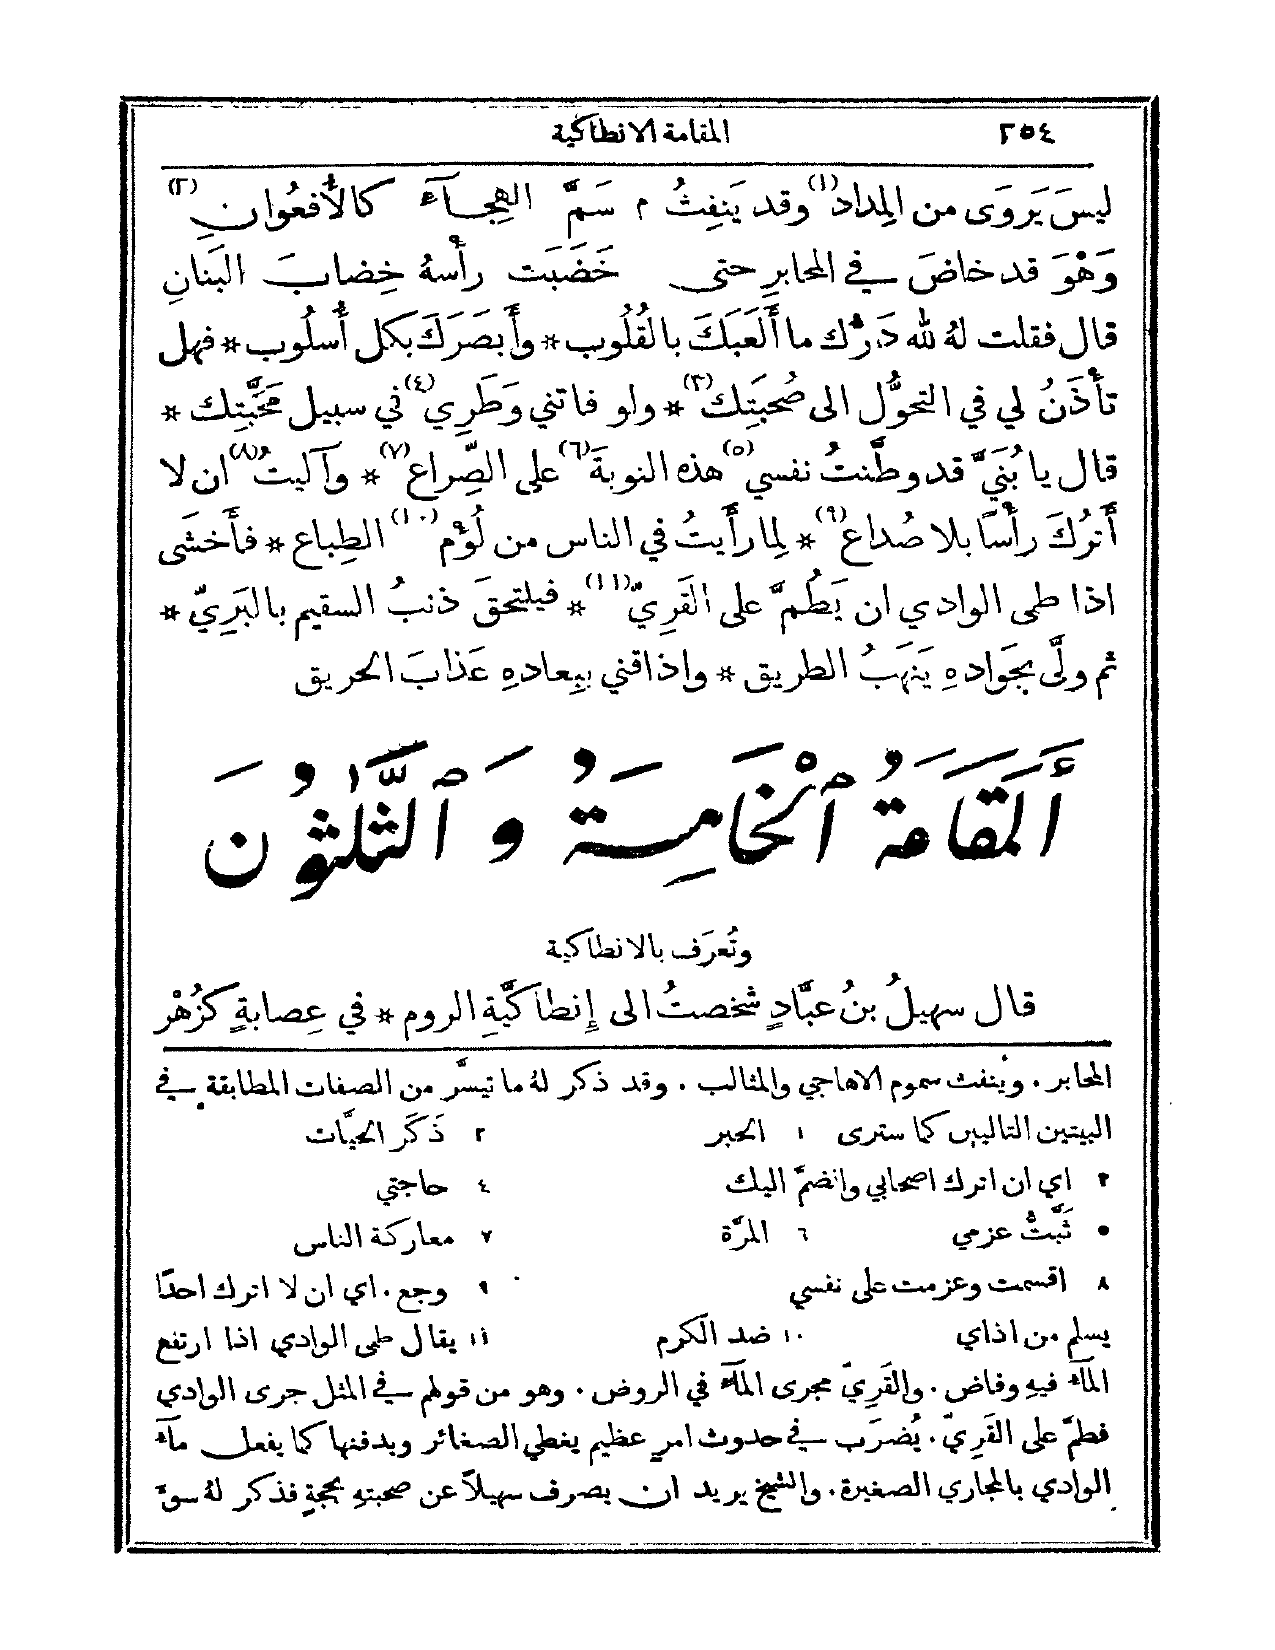 ٢٥٤ المقامة الانطاكية
ليسَ يَروَى من المِداد(١) وقد يَنفِثُ م سَمَّ الهِجآءَ كالأُفعُوانِ(٢)
وَهْوَ قد خاضَ في المحابرِ حتى خَضَبَت رأسهُ خِضابَ البَنانِ
قال فقلت لهُ لله دَرُّك ما أَلعَبَكَ بالقُلُوب * وأَبصَرَكَ بكل أُسلُوب * فهل
تأذَنُ لي في التحوُّل الى صُحبَتِك(٣) * ولو فاتني وَطَرِي(٤) في سبيل مَحَبَّتِك *
قال يا بُنَيَّ قد وطَّنتُ نفسي(٥) هذه النوبةَ(٦) على الصِّراع(٧) * وآليتُ(٨) ان لا
أَترُكَ رأسًا بلا صُداع(٩) * لِما رأَيتُ في الناس من لُؤم(١٠) الطِباع * فأَخشَى
اذا طمى الوادي ان يَطُمَّ على القَرِيّ(١١) * فيلتحقَ ذنبُ السقيم بالبَرِيّ *
ثم ولَّى بجَوادهِ يَنهَبُ الطريق * واذاقني بِبِعادهِ عَذابَ الحريق
أَلمَقَامَةُ ٱلْخَامِسَةُ وَ ٱلثَّلٰثُونَ
وتُعرَف بالانطاكية
قال سهيلُ بنُ عبَّادٍ شخصتُ الى إِنطاكَيَّةِ الروم * في عِصابةٍ كزُهْر
المحابر . وينفث سموم الاهاجي والمثالب . وقد ذكر لهُ ما تيسَّر من الصفات المطابقة في
البيتين التاليين كما سترى ١ الحبر ٢ ذَكَر الحيَّات
٣ اي ان اترك اصحابي وانضمَّ اليك ٤ حاجتي
٥ ثَبَّتُّ عزمي ٦ المرَّة ٧ معاركة الناس
٨ اقسمت وعزمت على نفسي ٩ وجع . اي ان لا اترك احدًا
يسلم من اذاي ١٠ ضد الكرم ١١ يقال طمى الوادي اذا ارتفع
المآء فيهِ وفاض . والقَرِيّ مجرى المآء في الروض . وهو من قولهم في المثل جرى الوادي
فطمَّ على القَرِيّ . يُضرَب في حدوث امرٍ عظيم يغطي الصغائر ويدفنها كما يفعل مآء
الوادي بالمجاري الصغيرة . والشيخ يريد ان يصرف سهيلاً عن صحبتهِ بحجةٍ فذكر لهُ سوءَ